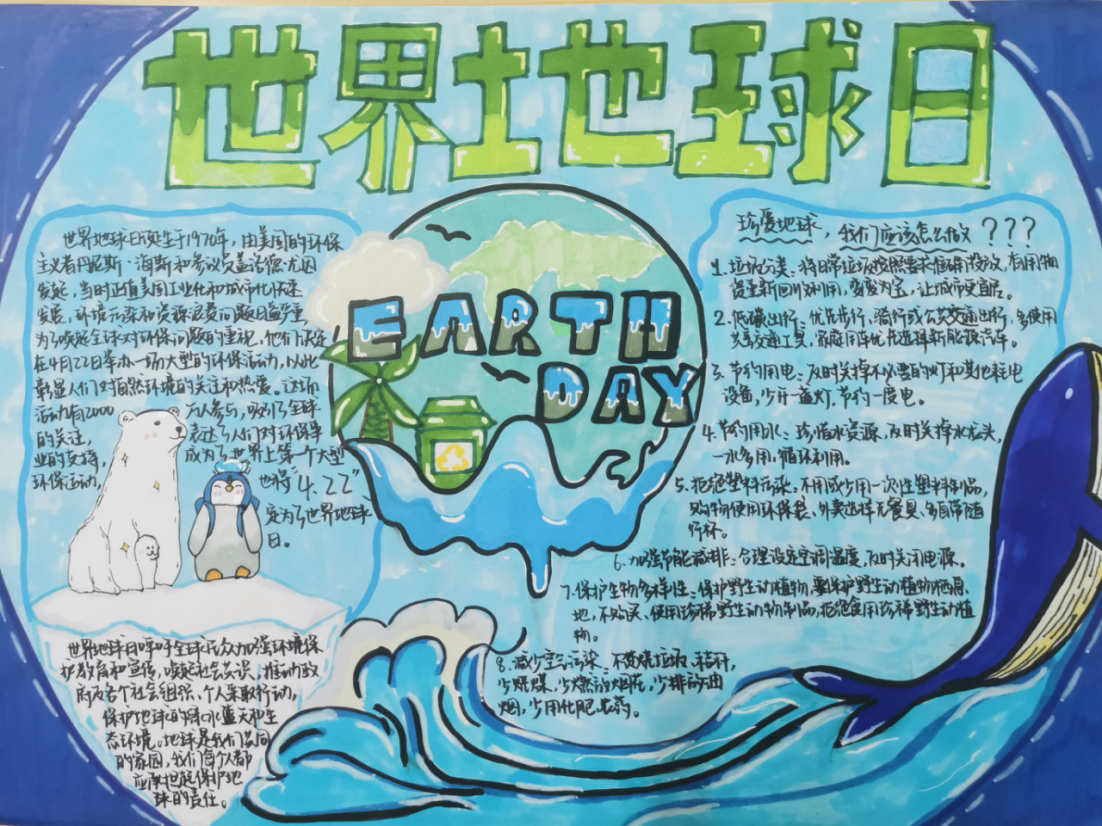 世界地球日
世界地球日诞生于1970年，由美国的环保
主义者丹尼斯·海斯和参议员盖洛德·尼尔森
发起，当时正值美国工业化和城市化快速
发展，环境污染和资源浪费问题日益严重
为了唤起全球对环保问题的重视，他们决定
在4月22日举办一场大型的环保活动，以此
彰显人们对自然环境的关注和热爱。这场
活动有2000万人参与，吸引了全球
的关注，表达了人们对环保事
业的支持，成为了世界上第一个大型
环保活动，也将“4.22”
定为了世界地球
日。
世界地球日呼吁全球民众加强环境保
护教育和宣传，唤起社会共识，推动政
府及各个社会组织、个人采取行动，
保护地球的绿水蓝天和生
态环境。地球是我们共同
的家园，我们每个人都
应承担起保护地
球的责任。
EARTH
DAY
珍爱地球，我们应该怎么做？？？
1.垃圾分类：将日常垃圾按照要求准确投放，有用物
资重新回收利用，变废为宝，让城市更宜居。
2.低碳出行：优先步行、骑行或公共交通出行，多使用
共享交通工具，家庭用车优先选择新能源汽车。
3.节约用电：及时关掉不必要的灯和其他耗电
设备，少开一盏灯，节约一度电。
4.节约用水：珍惜水资源，及时关掉水龙头，
一水多用，循环利用。
5.拒绝塑料污染：不用或少用一次性塑料制品，
购物使用环保袋、外卖选择无餐具、多自带随
行杯。
6.加强节能减排：合理设定空调温度，及时关闭电源。
7.保护生物多样性：保护野生动植物，要保护野生动植物栖息
地，不购买、使用珍稀野生动物制品，拒绝食用珍稀野生动植
物。
8.减少空气污染：不焚烧垃圾、秸秆，
少烧煤，少燃放烟花，少排放油
烟，少用化肥农药。